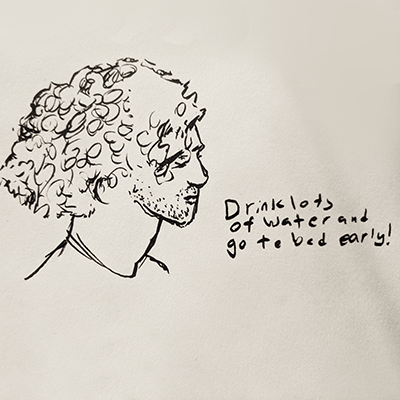 Drink lots
of water and
go to bed early!